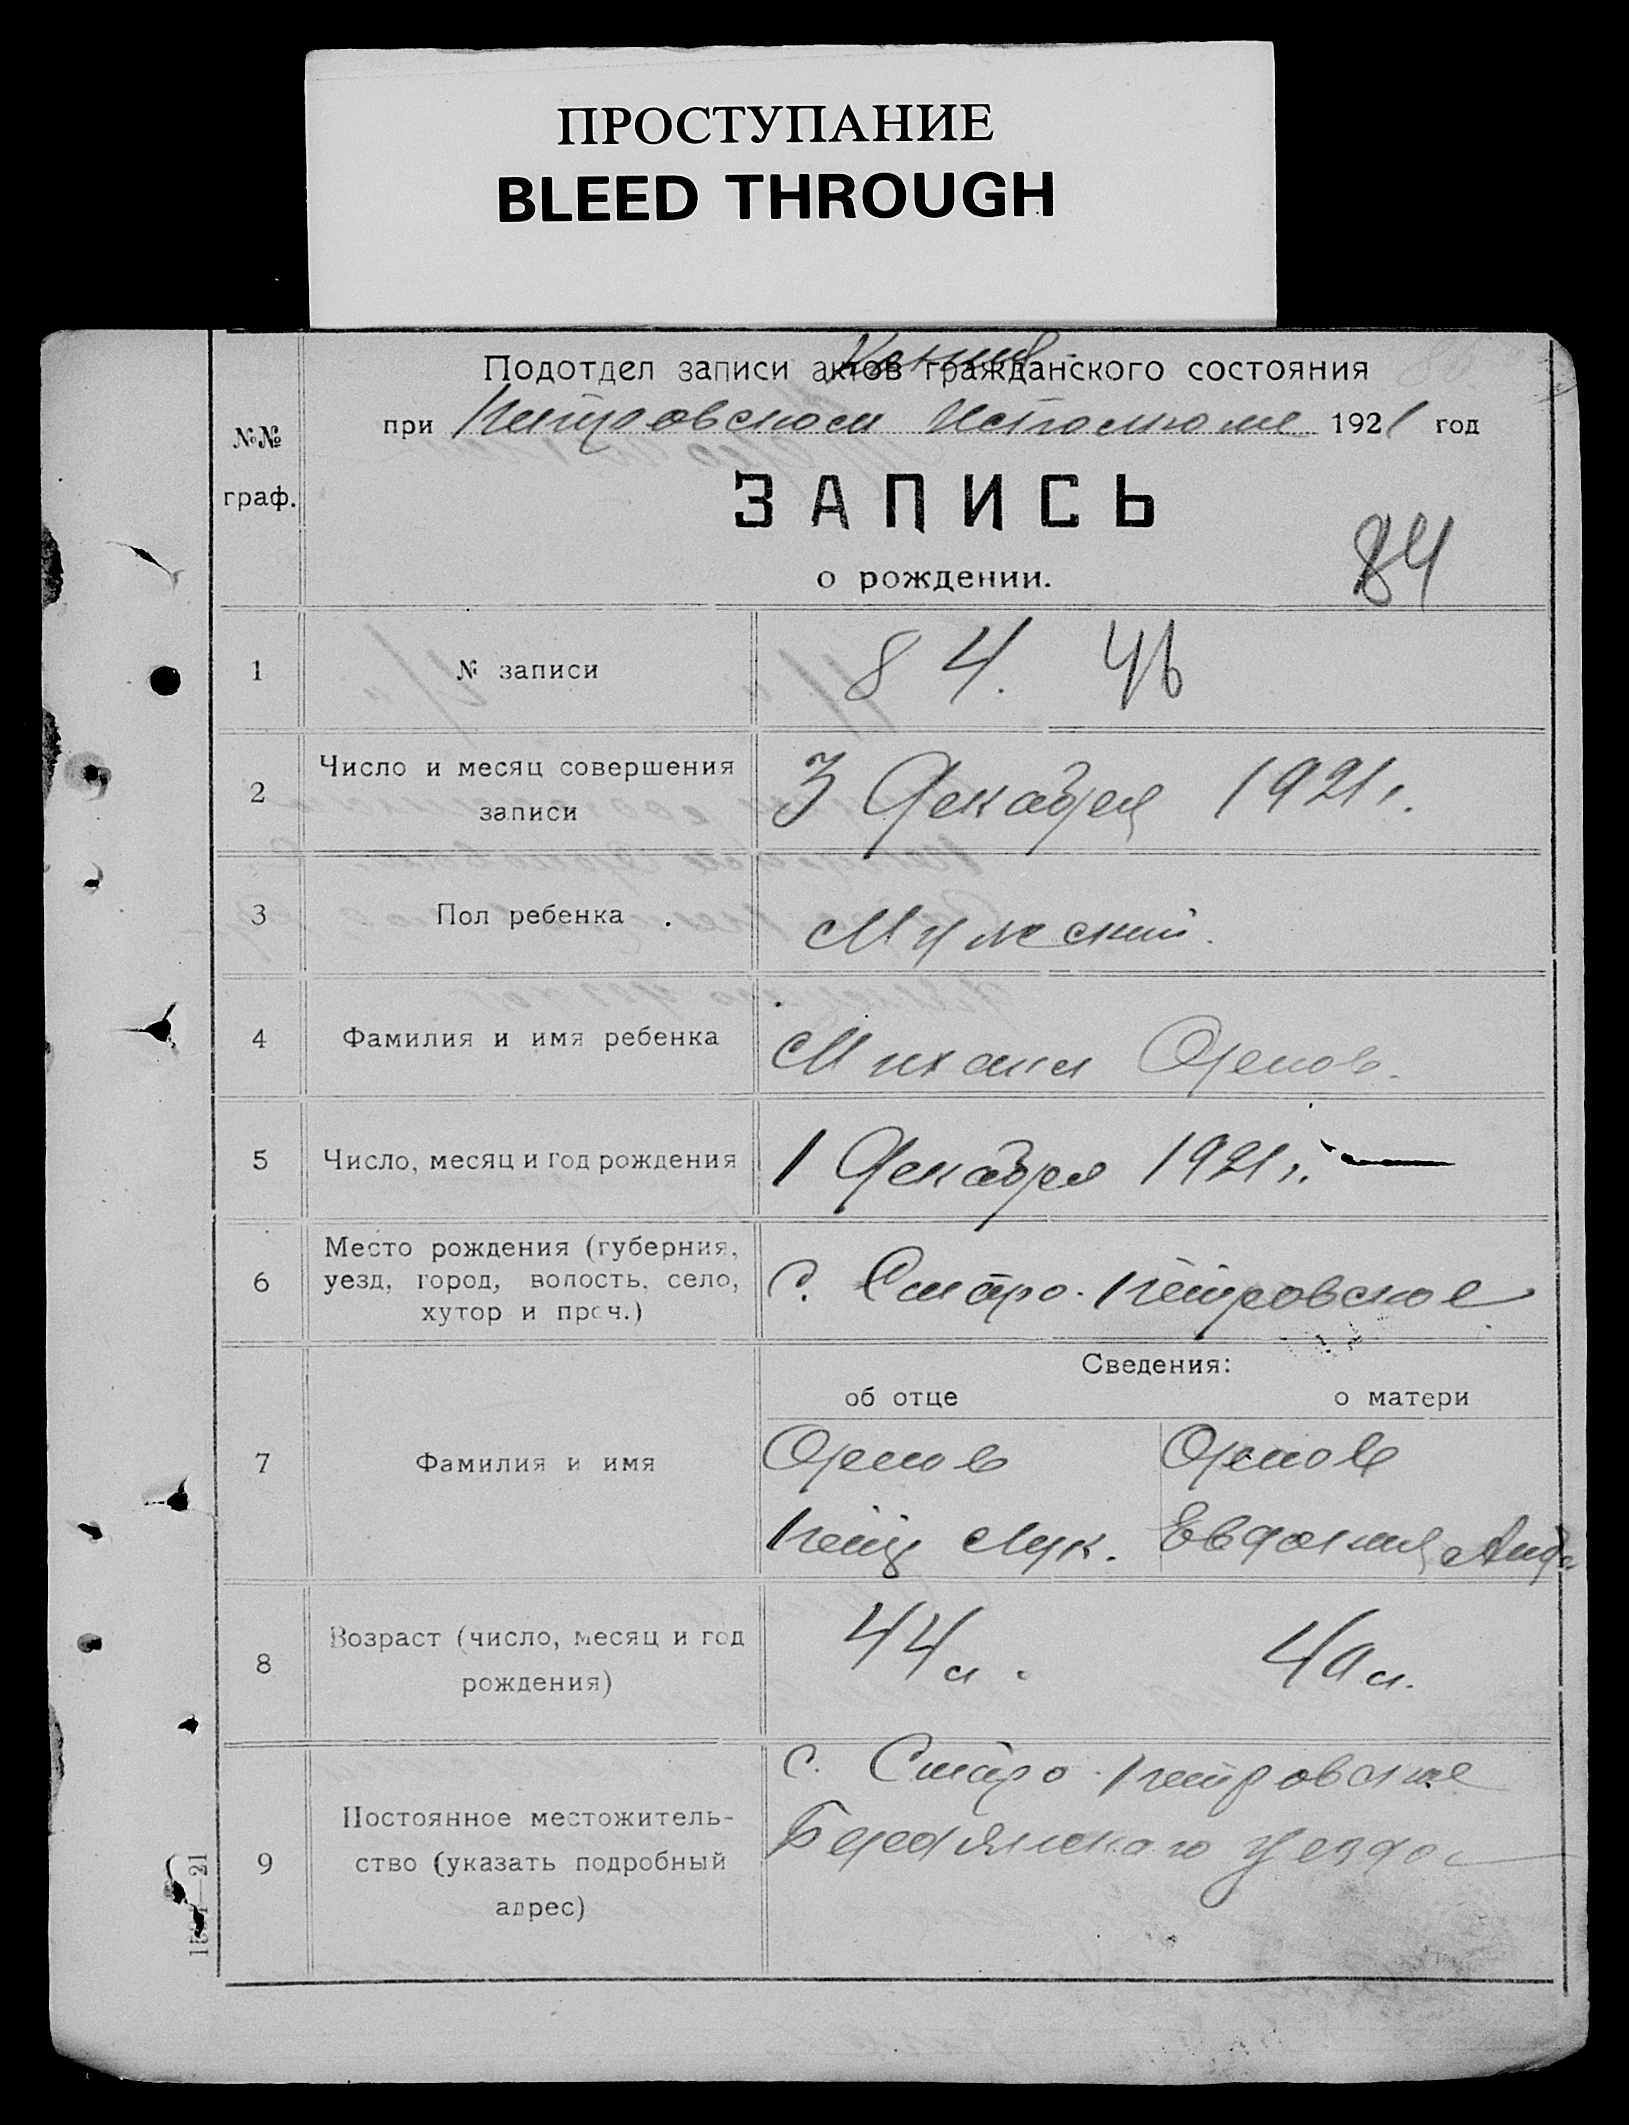 ПРОСТУПАНИЕ
BLEED THROUGH
Подотдел записи актов гражданского состояния
при Петровском Исполкоме 1921 год
№№
граф.
ЗАПИСЬ
84
о рождении.
1 № записи 84. 46
2 Число и месяц совершения записи 3 Декабря 1921 г.
3 Пол ребенка . Мужеский.
4 Фамилия и имя ребенка Михаил
5 Число, месяц и год рождения 1 Декабря 1921 г.
6 Место рождения (губерния,
уезд, город, волость, село,
хутор и проч.) с. Старо-Петровское
Сведения:
об отце о матери
7 Фамилия и имя
Петр Лук. Евдокия Андр
8 Возраст (число, месяц и год
рождения) 44 л. л.
9 Постоянное местожитель-
ство (указать подробный
адрес)
с. Старо-Петровское
Бердянского уезда